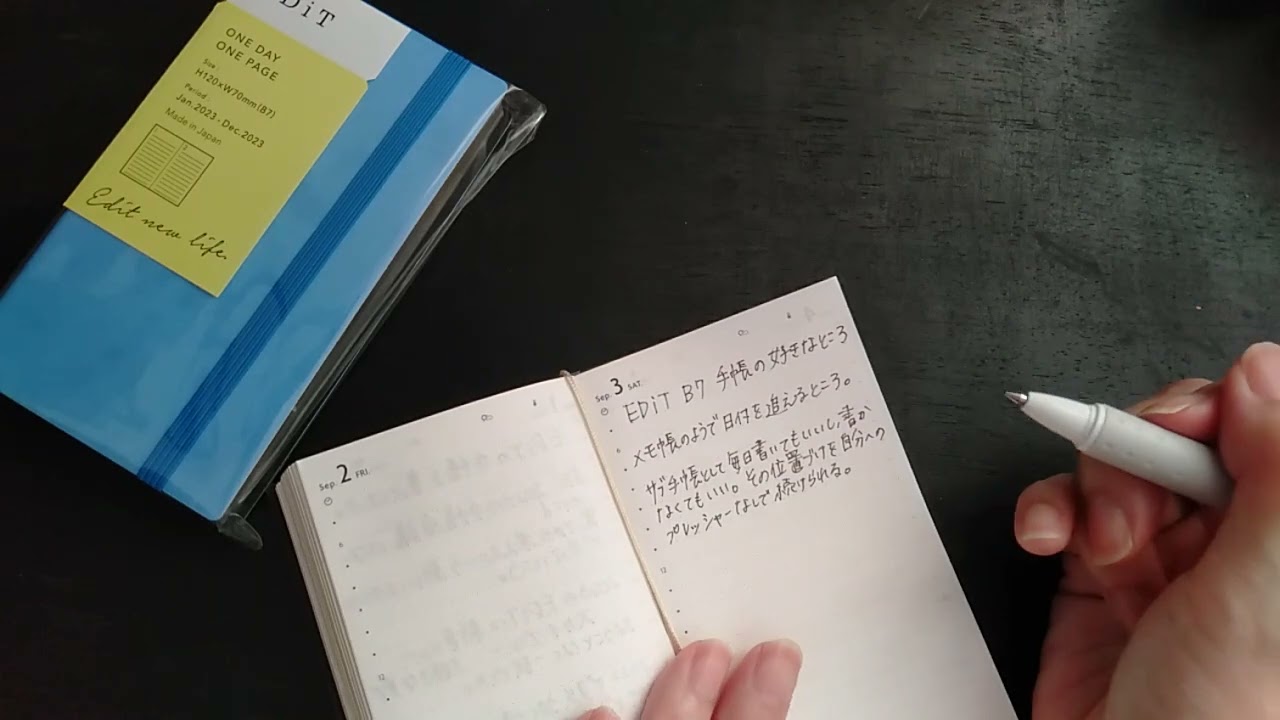 DiT
ONE DAY
ONE PAGE
Size
H120×W70mm(B7)
Period
Jan.2023 - Dec.2023
Made in Japan
Edit new life.
Sep. 2 FRI.
6
12
Sep. 3 SAT.
EDiT B7 手帳の好きなところ
メモ帳のようで日付を追えるところ。
6
サブ手帳として毎日書いてもいいし、書か
なくてもいい。その位置づけを自分への
プレッシャーなしで続けられる。
12